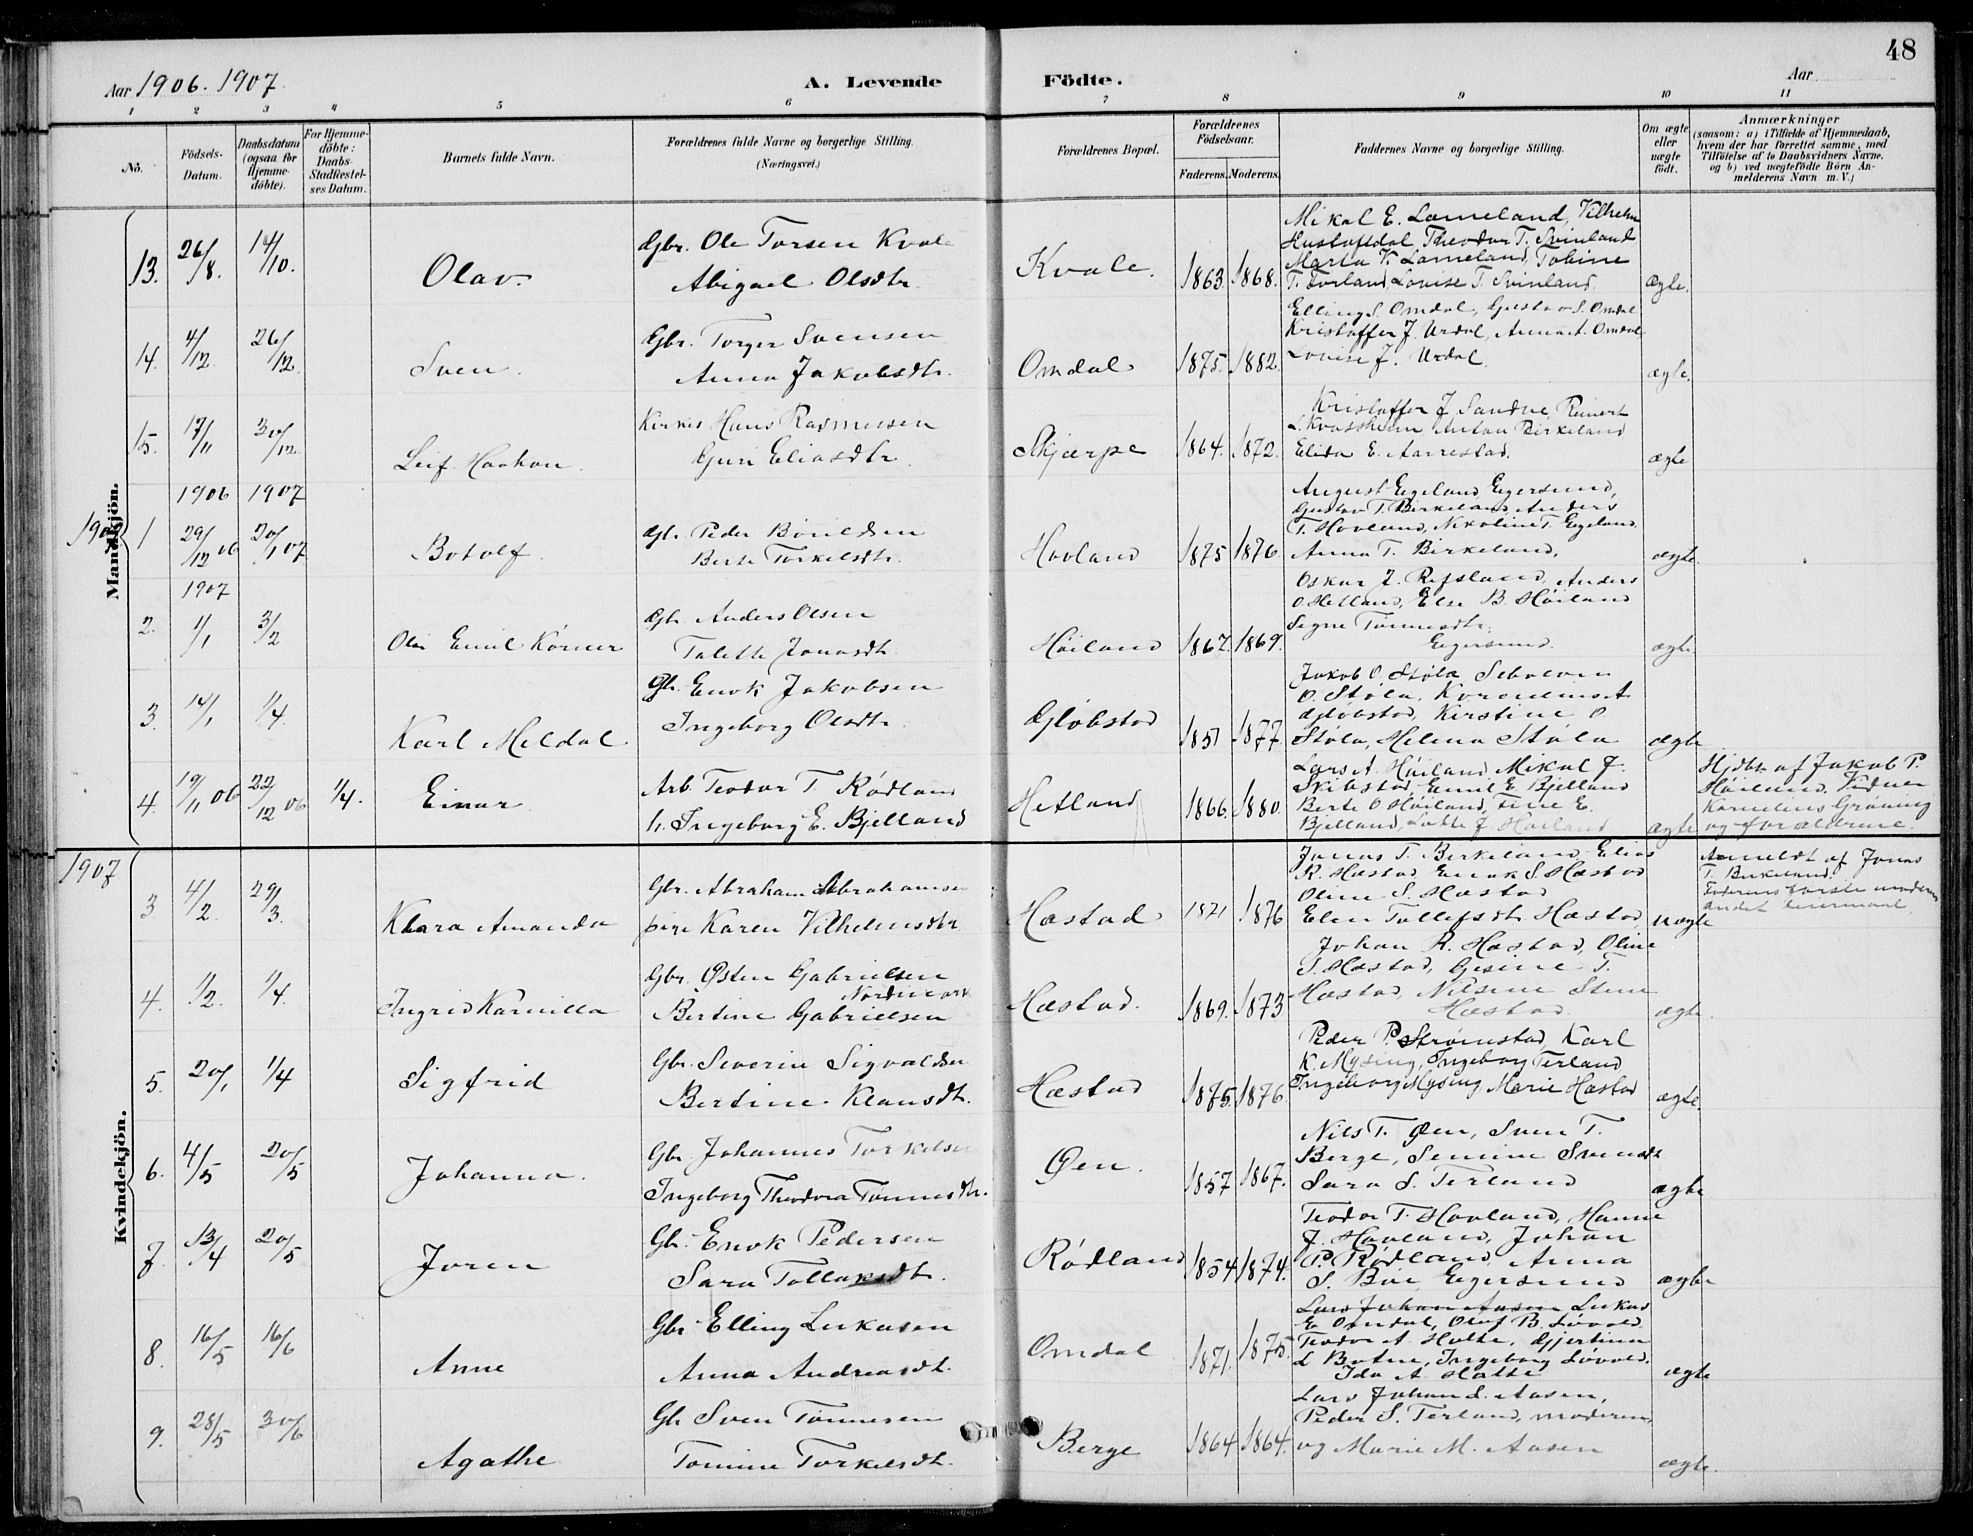 48
Aar 1906. 1907
A. Levende Födte.
Aar
1 2 3 4 5 6 7 8 9 10 11
No.
Födsels-Datum.
Daabsdatum (ogsaa for Hjemmedöbte).
For Hjemmedöbte: Daabs-Stadfæstelses Datum.
Barnets fulde Navn.
Forældrenes fulde Navne og borgerlige Stilling.
(Næringsvei.)
Forældrenes Bopæl.
Forældrenes Födselsaar.
Faderens. Moderens.
Faddernes Navne og borgerlige Stilling.
Om ægte eller uægte födt.
Anmærkninger
(saasom: a) i Tilfælde af Hjemmedaab, hvem der har forrettet samme, med Tilföielse af to Daabsvidners Navne, og b) ved uægtefödte Börn Anmelderens Navn m. V.)
Mandkjön.
13. 26/8. 14/10. Olav. Gbr. Ole Torsen Kvale
Abigael Olsdtr.
Kvale. 1863. 1868.
Mikal E. Lomeland, Vilhelm
Hustoftdal, Theodor T. Svinland
Marta K. Lomeland, Tobine
T. Torland, Louise T. Svinland.
ægte.
14. 4/12. 26/12. Sven. Gbr. Torger Svensen
Anna Jakobsdtr.
Omdal 1875. 1882.
Elling S. Omdal, Gustav S. Omdal
Kristoffer J. Urdal, Anna A. Omdal
Louise J. Urdal.
ægte.
15. 17/11 30/12. Leif Haakon. Kirkes. Hans Rasmussen
Guri Eliasdtr.
Skjærpe 1864. 1872.
Kristoffer J. Sandve, Reinert
L. Kvassheim Anton Birkeland
Elida E. Aarrestad.
ægte
1906 1907
1907
1 29/12 06 20/1 07 Botolf. Gbr. Peder Bøildsen
Berte Torkelsdtr.
Hovland 1875 1876.
August Eigeland Egersund,
Gustav T. Birkeland, Anders
T. Hovland, Nikoline T. Eigeland.
Anna T. Birkeland.
ægte.
1907
2. 1/1 3/2 Olai Emil Kørner Gbr. Anders Olsen
Talette Jonasdtr.
Høiland 1867. 1869.
Oskar J. Refsland, Anders
O. Hetland, Else B. Høiland
Signe Tønnesdtr.
Egersund.
ægte
3. 14/1 1/4. Karl Meldal Gbr. Enok Jakobsen
Ingeborg Olsdtr.
Gløbstad 1851 1877
Jakob O. Støle
O. Støle,
Gløbstad, Kirstine O
Støle, Helena Støle
ægte
4. 19/11 06 22/12 06 1/4. Einar. Arb. Teodor T. Rødland
h. Ingeborg E. Bjelland
Hetland 1866. 1880.
Lars A. Høiland, Mikal J.
Skibstad, Emil E. Bjelland
Berte O Høiland, Tine E.
Bjelland, Lotte J Høiland
ægte
Hjdbt. af Jakob P.
Høiland. Vidner
Kornelius Grøning
og forældrene.
1907
Kvindekjön.
3 4/2. 29/3. Klara Amanda Gbr. Abraham Abrahamsen
pige Karen Vilhelmsdtr
Hæstad 1871 1876
Jonas T. Birkeland, Elias
R. Hæstad, Enok S. Hæstad
Oline S. Hæstad
Elen Tollefsdtr. Hæstad,
uægte
Anmeldt af Jonas
T. Birkeland.
Faderens første moderens
andet leiermaal.
4. 1/2. 1/4. Ingrid Kamilla Gbr. Østen Gabrielsen
Nordmark
Bertine Gabrielsen
Hæstad. 1869. 1873
Johan R. Hæstad, Oline
S. Hæstad, Gesine T.
Hæstad, Nilsine Stene
Hæstad.
ægte.
5. 20/1 1/4 Sigfrid Gbr. Severin Sigvaldsen
Bertine Klausdtr.
Hæstad 1875. 1876.
Peder P. Strømstad, Karl
K. Mysing, Ingeborg Terland
Ingeborg Mysing, Marie Hæstad
ægte.
6. 4/5 20/5 Johanna. Gbr. Johannes Torkelsen
Ingeborg Theodora Tønnesdtr.
Øen. 1857 1867.
Nils T. Øen, Sven T.
Berge, Semine Svendsdt
Sara S. Terland
ægte
7. 13/4 20/5 Joren Gbr. Enok Pedersen
Sara Tollaksdtr.
Rødland 1854 1874.
Teodor T. Hovland, Hanne
J. Hovland, Johan
P. Rødland Anna
S. Bøe Egersund
ægte
8. 16/5 16/6 Anne Gbr. Elling Lukasen
Anna Andreasdtr.
Omdal 1871. 1875.
Lars Johan Aasen Lukas
E. Omdal, Oluf B. Løvold
Teodor A. Holte, Gjertine
L Botne, Ingeborg Løvold.
Ida A. Holte
ægte
9. 28/5 30/6 Agathe Gbr. Sven Tønnesen
Tomine Torkelsdtr.
Berge 1864 1864.
Lars Johan L. Aasen,
Peder S. Terland, moderen,
og Marie M. Aasen
ægte.